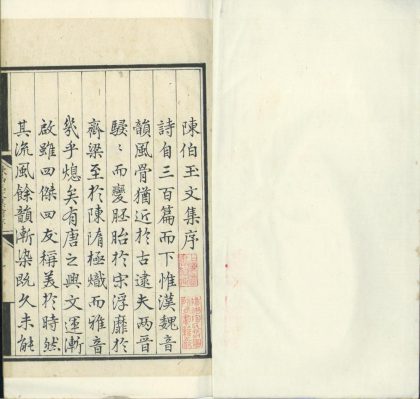 陳伯玉文集序
詩自三百篇而下惟漢魏音
韻風骨猶近於古逮夫兩晉
駸駸而變胚胎於宋浮靡於
齊梁至於陳隋極熾而雅音
幾乎熄矣有唐之興文運漸
啟雖四傑四友稱美於時然
其流風餘韻漸染既久未能